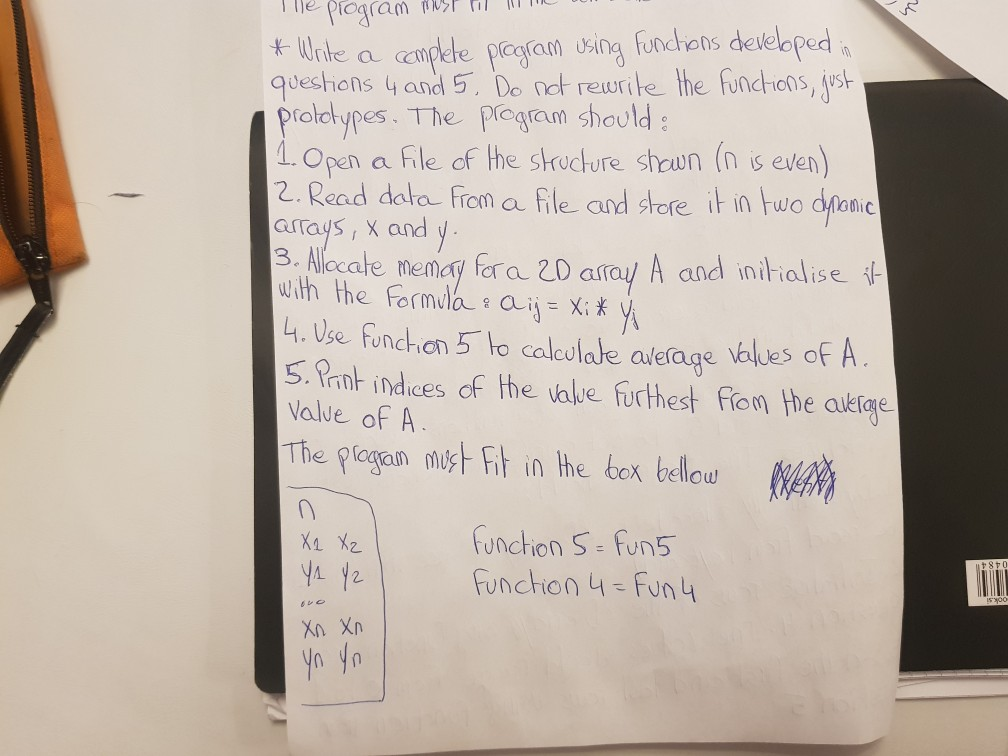 The program must fit in the
* Write a complete program using functions developed in
questions 4 and 5. Do not rewrite the functions, just
prototypes. The program should:
1. Open a file of the structure shown (n is even)
2. Read data from a file and store it in two dynamic
arrays, x and y.
3. Allocate memory for a 2D array A and initialise it
with the formula: aij = xi * yj
4. Use function 5 to calculate average values of A.
5. Print indices of the value furthest from the average
value of A.
The program must fit in the box bellow
n
x1 x2
y1 y2
...
xn xn
yn yn
function 5 = fun5
function 4 = fun4